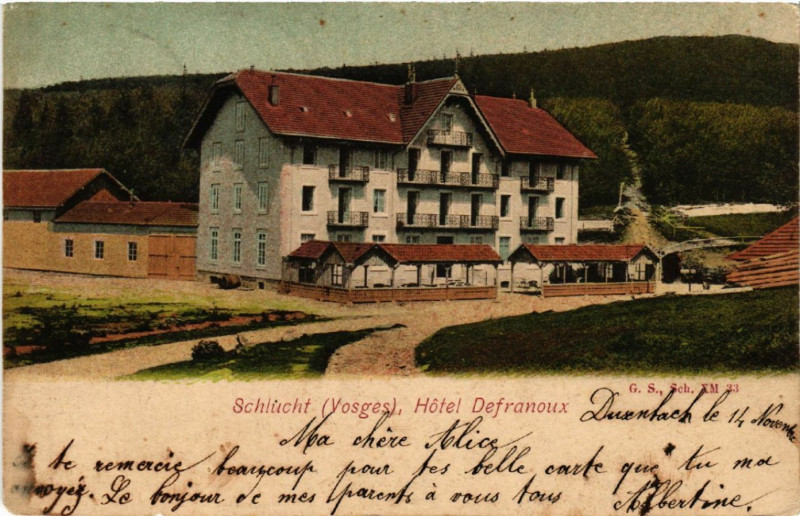 G. S., Sch. XM 33
Schlucht (Vosges), Hôtel Defranoux
Duxenbach le 14 Novembre
Ma chère Alice
te remercie beaucoup pour tes belle carte que tu ma
envoyéz. Le bonjour de mes parents à vous tous Albertine.